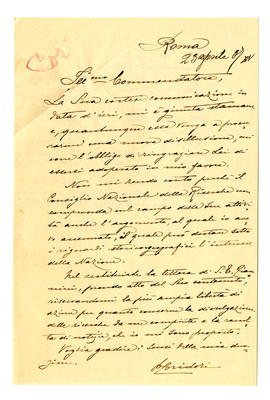 Roma
23 aprile
Ill.mo Commendatore,
La Sua cortese comunicazione in
data d'ieri, mi è giunta staman-
e, quantunque essa venga a procu-
rarmi una nuova disillusione, mi
corre l'obbligo di ringraziar La di
essersi adoperato in mio favore.
Non mi rendo conto perchè il
Consiglio Nazionale delle Ricerche non
comprenda nel campo della sua attivi-
tà anche l'argomento, al quale io ave-
vo accennato, il quale può destare sotto
i riguardi storico l'interesse
della Nazione.
Nel restituirLe la lettera di S.E. Gian-
nini, prendo atto del Suo contenuto,
riservandomi la più ampia libertà di
azione per quanto concerne la divulgazione
delle ricerche da me compiute e la raccol-
ta di notizie, che io mi sono proposto.
Voglia gradire i sensi della mia devo-